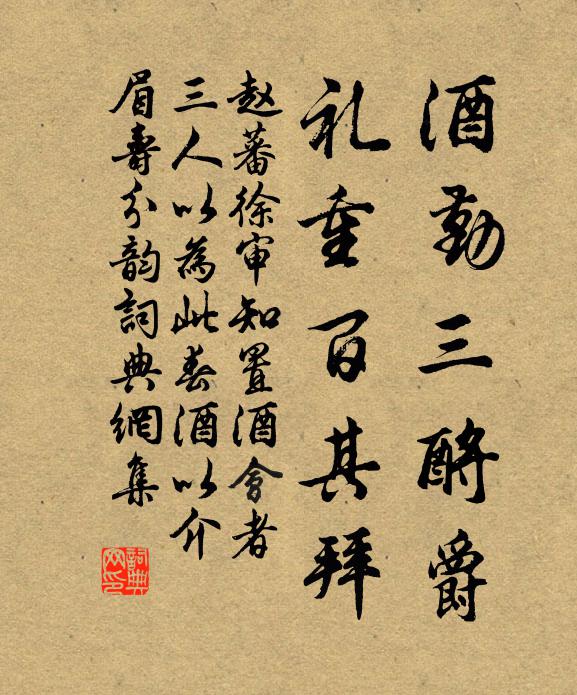 酒勤三酹爵
礼重百其拜
赵蕃徐审知置酒会者
三人以為此春酒以介
眉壽分韵詞典網集
詞典网印